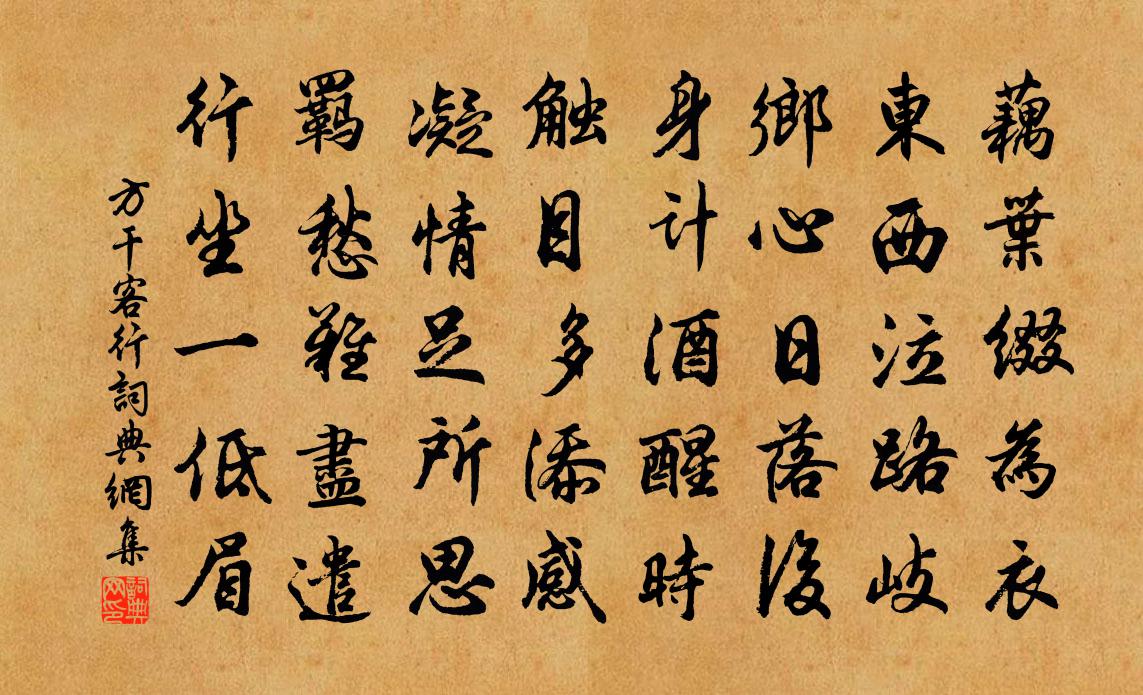 藕葉綴為衣
東西泣路岐
鄉心日落後
身計酒醒時
触目多添感
凝情足所思
羈愁難盡遣
行坐一低眉
方干客行詞典網集
詞典网印